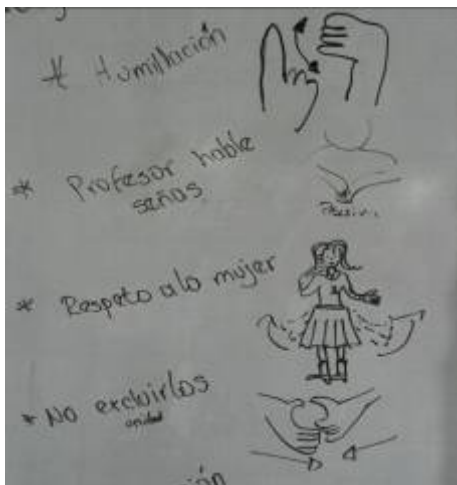 * Humillación
* Profesor hable
señas
* Respeto a la mujer
* No excluirlos
unidad
ión